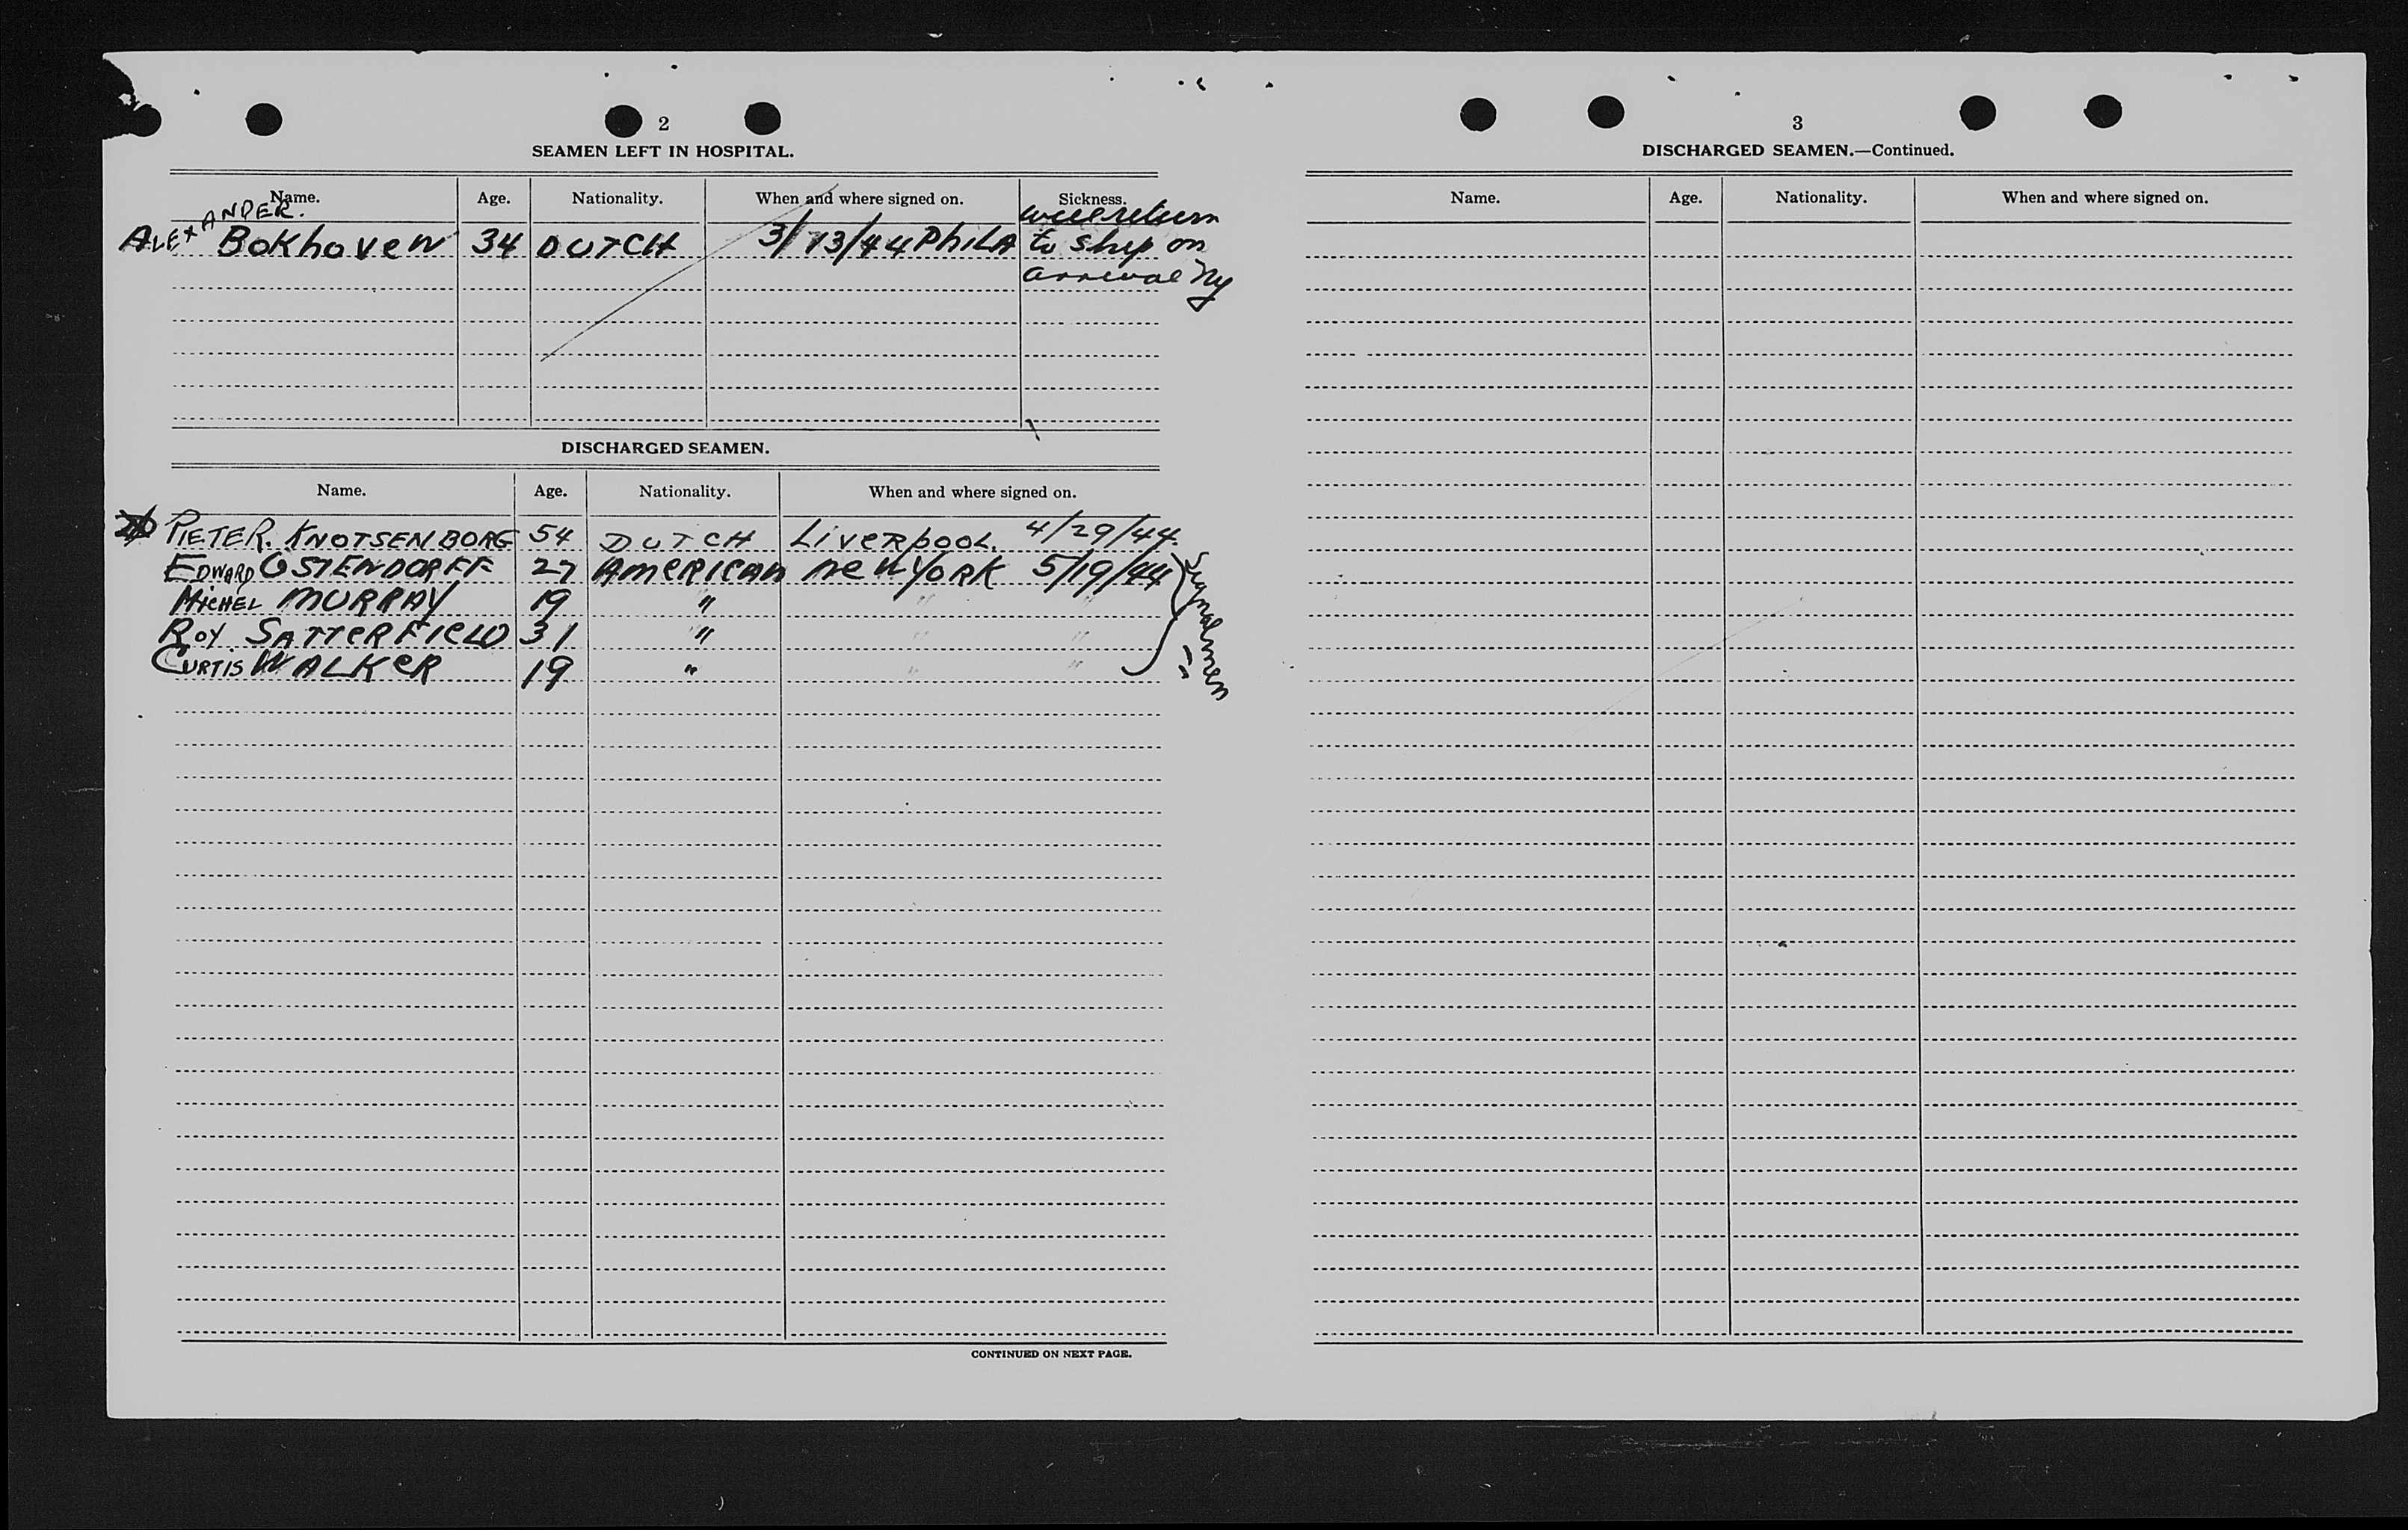 2
SEAMEN LEFT IN HOSPITAL.
Name. Age. Nationality. When and where signed on. Sickness.
ALEXANDER. Bokhoven 34 DUTCH 3/13/44 PhiLA will return
to ship on
arrival Ny
DISCHARGED SEAMEN.
Name. Age. Nationality. When and where signed on.
PIETER. KNOTSENBORG 54 DUTCH LiveRpooL. 4/29/44.
EDWARD OSTENDORFF 27 AmeRICAN New YoRK 5/19/44
MICHEL MURRAY 19 " " "
ROY. SATTERFIELD 31 " " "
CURTIS WALKeR 19 " " "
Signalmen
CONTINUED ON NEXT PAGE.
3
DISCHARGED SEAMEN.—Continued.
Name. Age. Nationality. When and where signed on.